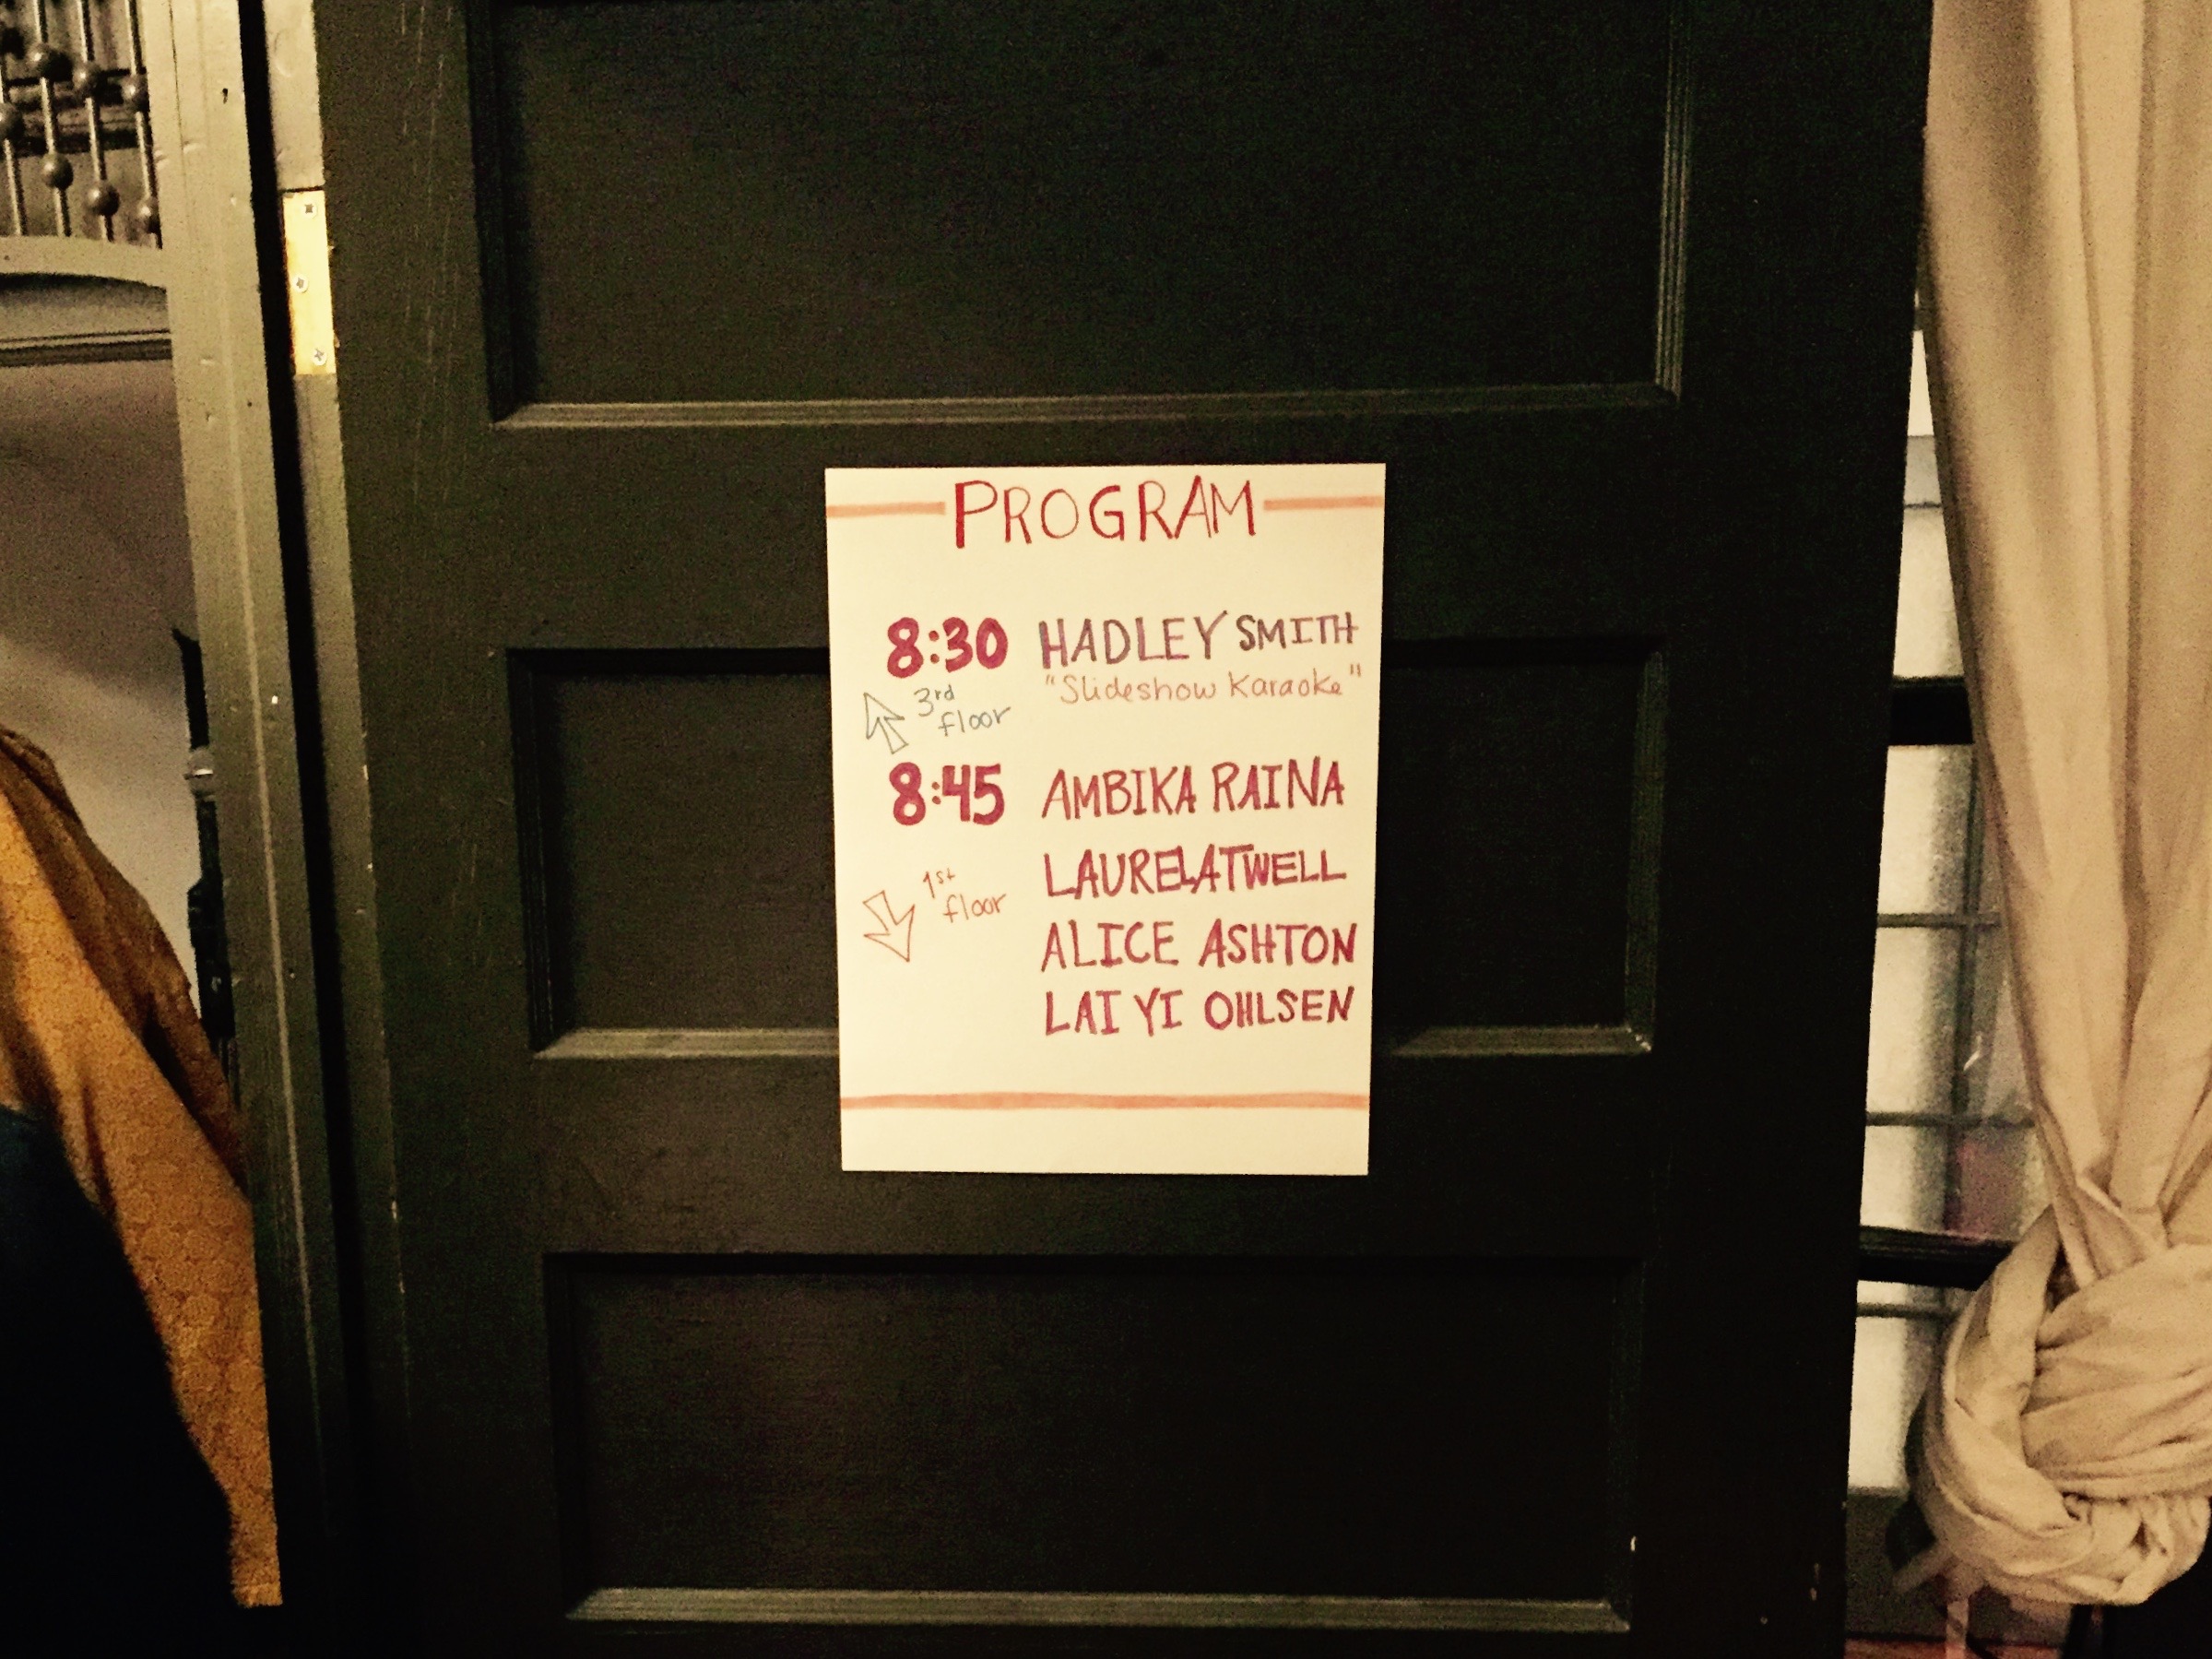 PROGRAM
8:30 HADLEY SMITH
"Slideshow Karaoke"
3rd
floor
8:45 AMBIKA RAINA
LAUREL ATWELL
1st
floor
ALICE ASHTON
LAI YI OHLSEN